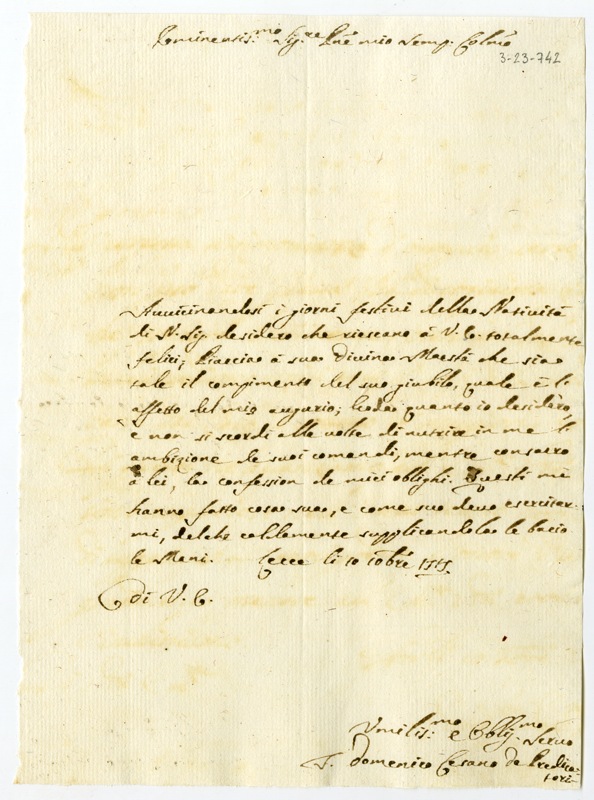 Eminentis.mo Sig.re Pñe mio semp. Colmo
3-23-742
Avvicinandosi i giorni festivi della Natività
di N. Sig. desidero che riescano à V. E. totalmente
felici; Piaccia à sua Divina Maestà che sia
tale il compimento del suo giubilo, quale è l'
affetto del mio augurio; goda quanto io desidero,
e non si scordi alle volte di nutrire in me l'
ambizione de suoi comandi, mentre consacro
à lei, la confession de miei oblighi. Questi mi
hanno fatto cosa sua, e come sua devo esercitar-
mi, del che caldamente supplicandola le bacio
le Mani. Lecce li 10 xbre
di V. E.
Vmilis.mo e Oblig.mo Servo
F. Domenico Cesano de Predica-
tori